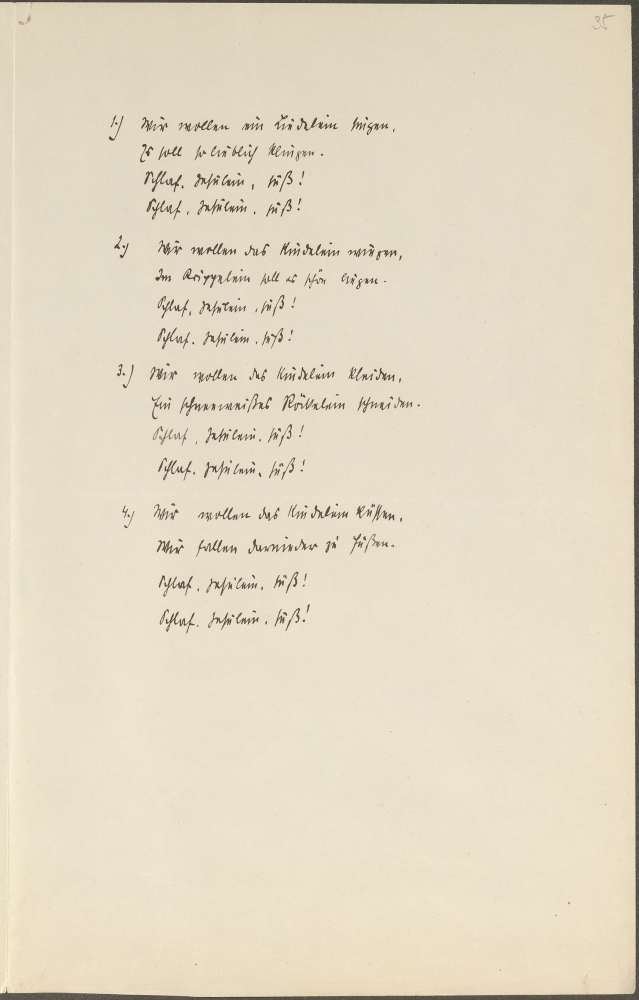 35
1.) Wir wollen ein Liedelein singen,
Es soll so lieblich klingen.
Schlaf, Jesulein, süß!
Schlaf, Jesulein, süß!
2.) Wir wollen das Kindelein wiegen,
Im Krippelein soll es schön liegen.
Schlaf, Jesulein, süß!
Schlaf, Jesulein, süß!
3.) Wir wollen das Kindelein kleiden,
Ein schneeweißes Röckelein schneiden.
Schlaf, Jesulein, süß!
Schlaf, Jesulein, süß!
4.) Wir wollen das Kindelein küssen,
Wir fallen darnieder zu Füßen.
Schlaf, Jesulein, süß!
Schlaf, Jesulein, süß!